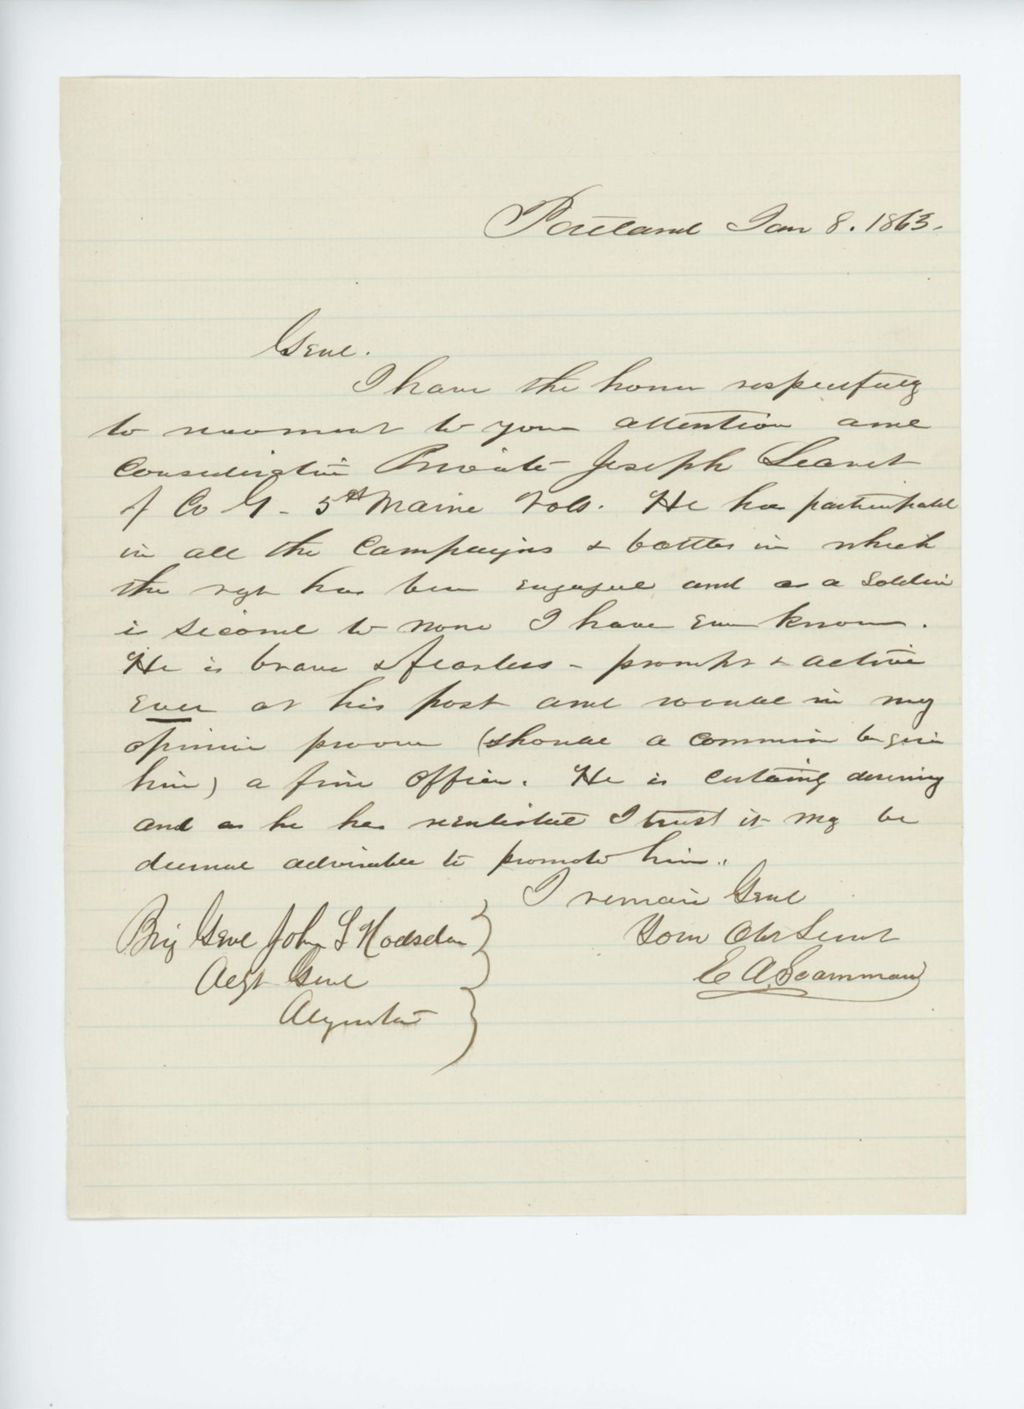 Portland Jan 8. 1863.
Genl.
I have the honor respectfully
to recommend to your attention and
Consideration Private Joseph
of Co G - 5th Maine Vols. He has participated
in all the Campaigns & battles in which
the regt has been engaged and as a Soldier
is second to none I have ever known.
He is brave & fearless - prompt & active
ever at his post and would in my
opinion prove (should a commission be given
him) a fine officer. He is certainly deserving
and as he has reenlisted I trust it may be
deemed advisable to promote him.
I remain Genl
Your Obt Servt
E A Scamman
Brig Genl John L Hodsdon
Adjt Genl
Augusta